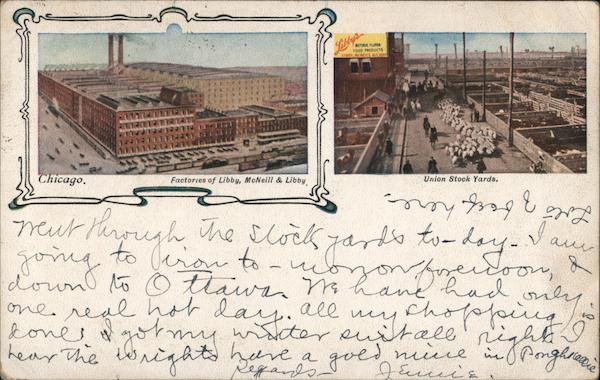 Libby's
NATURAL FLAVOR
FOOD PRODUCTS
Chicago.
Factories of Libby, McNeill & Libby
Union Stock Yards.
Went through the stock yards to-day. I am
going to iron to-morrow forenoon, &
down to Ottawa. We have had only
one real hot day. All my shopping is
done, I got my winter suit all right. I
hear the Wrights have a gold mine in Poughkeepsie
Regards Jennie.